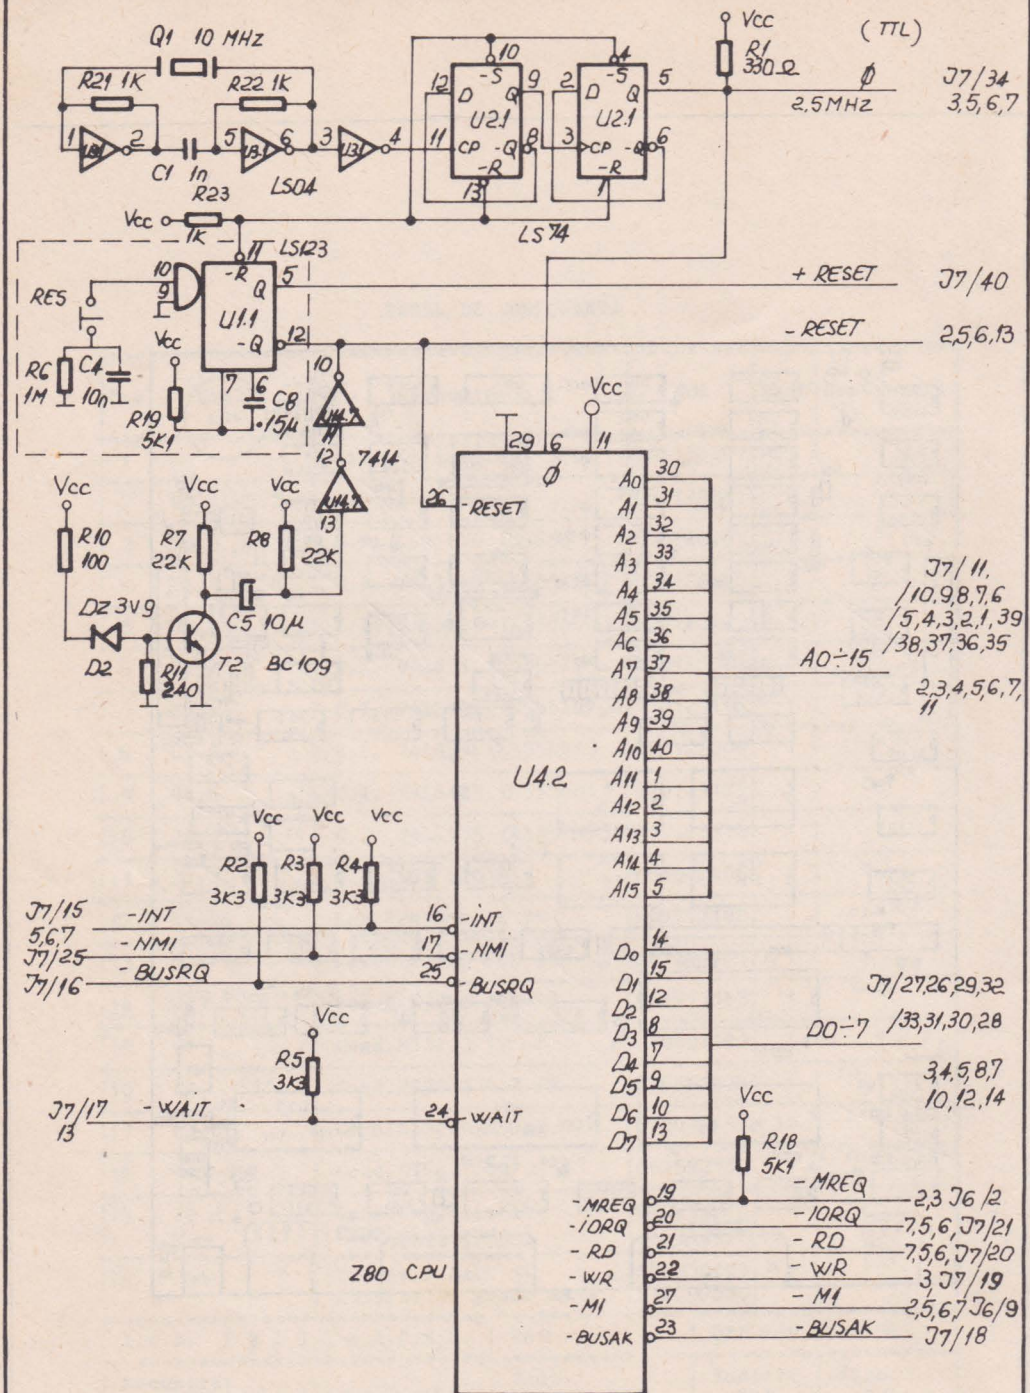 Q1 10 MHz
R21 1K
R22 1K
1
2
5
6
3
4
U3.1
U3.1
C1 1n
LS04
R23
1K
Vcc
12
D
11
CP
10
-S
U2.1
9
Q
8
-Q
-R
13
2
D
3
CP
4
-S
U2.1
5
Q
6
-Q
-R
1
LS74
Vcc
R1
330Ω
(TTL)
Ø
2,5MHZ
J7/34
3,5,6,7
RES
10
9
11
LS123
-R
5
Q
U1.1
12
-Q
7
6
Vcc
R6
1M
C4
10n
R19
5K1
C8
.15μ
+ RESET
J7/40
- RESET
2,5,6,13
10
U14.7
11
12
7414
U14.7
13
Vcc
R10
100
Vcc
R7
22K
Vcc
R8
22K
DZ 3V9
D2
R11
240
T2
BC109
C5 10μ
Vcc
29
6
11
Ø
26
-RESET
A0 30
A1 31
A2 32
A3 33
A4 34
A5 35
A6 36
A7 37
A8 38
A9 39
A10 40
A11 1
A12 2
A13 3
A14 4
A15 5
J7/11,
/10,9,8,7,6
/5,4,3,2,1,39
/38,37,36,35
A0÷15
2,3,4,5,6,7,
11
U4.2
Vcc
Vcc
Vcc
R2
3K3
R3
3K3
R4
3K3
J7/15
-INT
16
-INT
5,6,7
J7/25
-NMI
17
-NMI
J7/16
-BUSRQ
25
-BUSRQ
Vcc
R5
3K3
J7/17
13
-WAIT
24
-WAIT
D0 14
D1 15
D2 12
D3 8
D4 7
D5 9
D6 10
D7 13
J7/27,26,29,32
D0÷7
/33,31,30,28
3,4,5,8,7
10,12,14
Vcc
R18
5K1
-MREQ 19
-MREQ
2,3 J6/2
-IORQ 20
-IORQ
7,5,6,J7/21
-RD 21
-RD
7,5,6,J7/20
-WR 22
-WR
3,J7/19
-M1 27
-M1
2,5,6,7 J6/9
-BUSAK 23
-BUSAK
J7/18
Z80 CPU